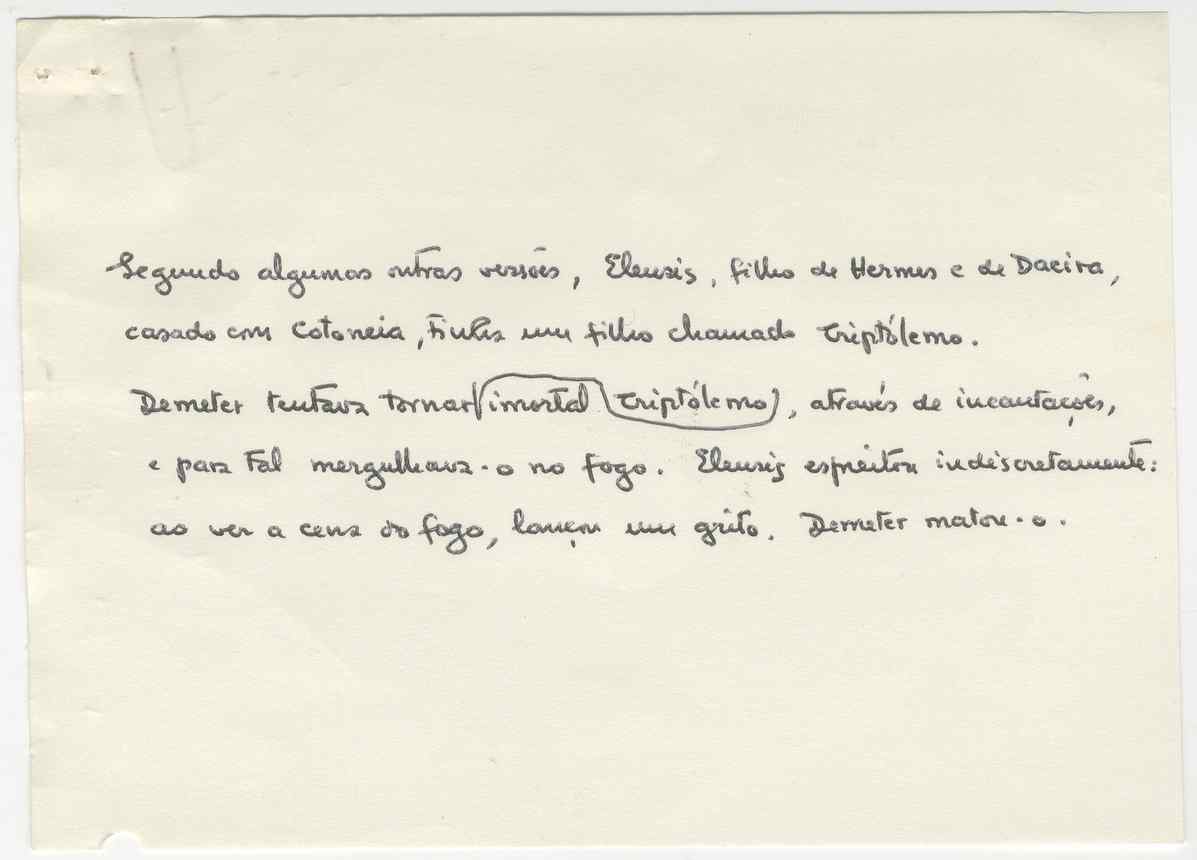 Segundo algumas outras versões, Eleusis, filho de Hermes e de Daeira,
casado com Cotoneia, tinha um filho chamado Triptólemo.
Demeter tentava tornar imortal Triptólemo, através de incantações,
e para tal mergulhava-o no fogo. Eleusis espreitou indiscretamente:
ao ver a cena do fogo, lançou um grito. Demeter matou-o.